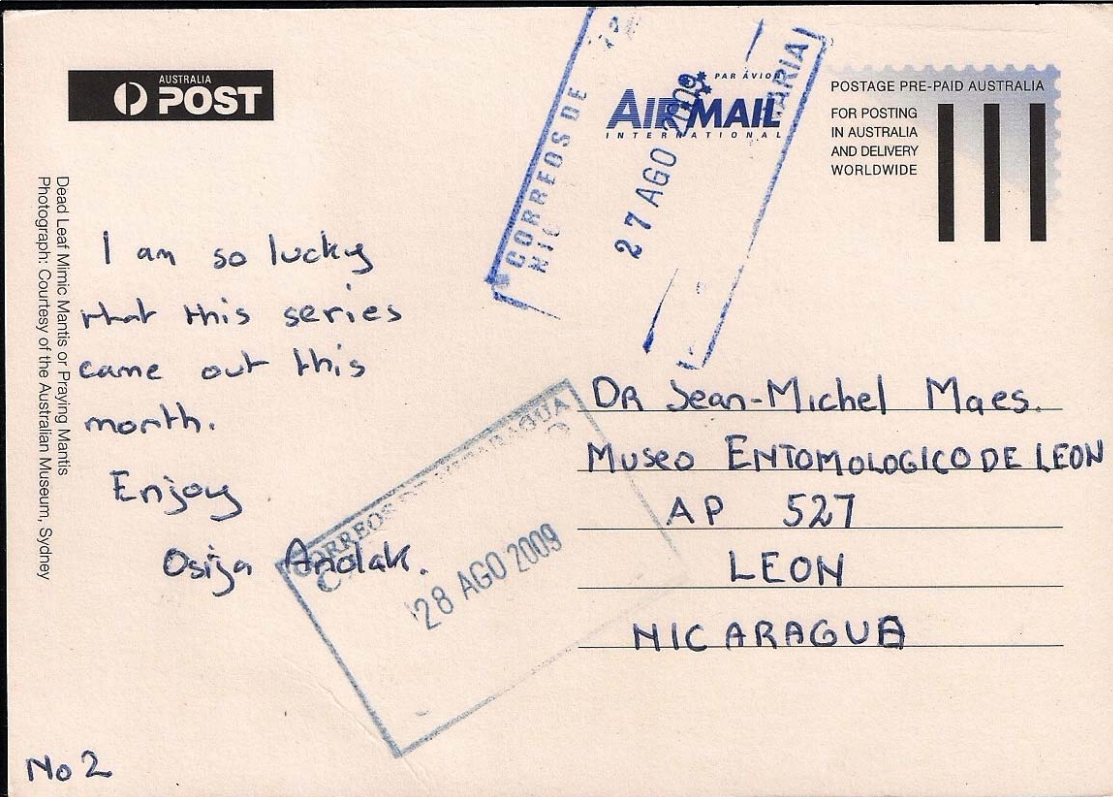 AUSTRALIA
POST
PAR AVION
AIR MAIL
INTERNATIONAL
POSTAGE PRE-PAID AUSTRALIA
FOR POSTING
IN AUSTRALIA
AND DELIVERY
WORLDWIDE
CORREOS DE
NIC
27 AGO 2009
Dead Leaf Mimic Mantis or Praying Mantis
Photograph: Courtesy of the Australian Museum, Sydney
I am so lucky
that this series
came out this
month.
Enjoy
Osija Anolak.
DR Jean-Michel Maes.
MUSEO ENTOMOLOGICO DE LEON
AP 527
LEON
NICARAGUA
CORREOS DE NICARAGUA
28 AGO 2009
No 2